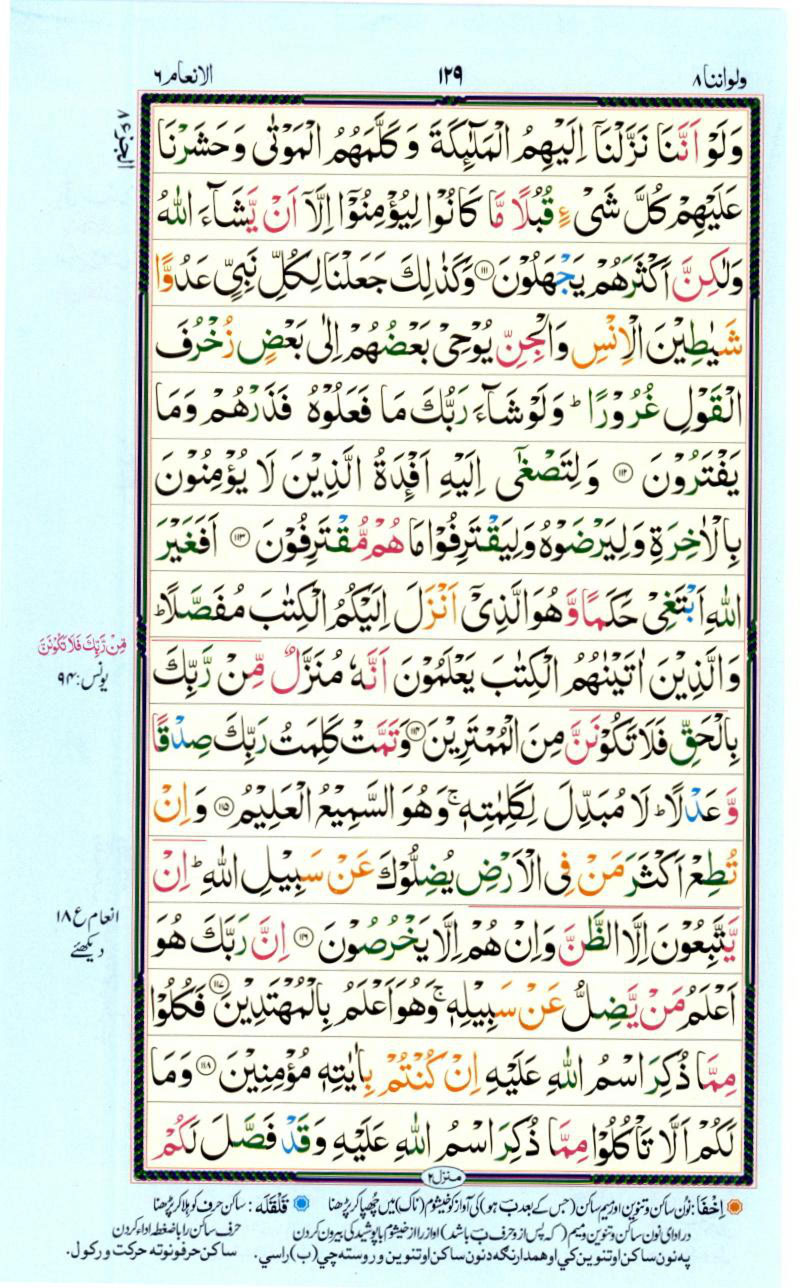 ولواننا ٨ ١٢٩ الانعام ٦
الجزء ٨
وَلَوْ اَنَّنَا نَزَّلْنَاۤ اِلَيْهِمُ الْمَلٰٓئِكَةَ وَكَلَّمَهُمُ الْمَوْتٰى وَحَشَرْنَا
عَلَيْهِمْ كُلَّ شَىْءٍ قُبُلًا مَّا كَانُوْا لِيُؤْمِنُوْۤا اِلَّاۤ اَنْ يَّشَآءَ اللّٰهُ
وَلٰكِنَّ اَكْثَرَهُمْ يَجْهَلُوْنَ ۝١١١ وَكَذٰلِكَ جَعَلْنَا لِكُلِّ نَبِىٍّ عَدُوًّا
شَيٰطِيْنَ الْاِنْسِ وَالْجِنِّ يُوْحِىْ بَعْضُهُمْ اِلٰى بَعْضٍ زُخْرُفَ
الْقَوْلِ غُرُوْرًا ؕ وَلَوْ شَآءَ رَبُّكَ مَا فَعَلُوْهُ فَذَرْهُمْ وَمَا
يَفْتَرُوْنَ ۝١١٢ وَلِتَصْغٰۤى اِلَيْهِ اَفْـِٕدَةُ الَّذِيْنَ لَا يُؤْمِنُوْنَ
بِالْاٰخِرَةِ وَلِيَرْضَوْهُ وَلِيَقْتَرِفُوْا مَا هُمْ مُّقْتَرِفُوْنَ ۝١١٣ اَفَغَيْرَ
اللّٰهِ اَبْتَغِىْ حَكَمًا وَّهُوَ الَّذِىْۤ اَنْزَلَ اِلَيْكُمُ الْكِتٰبَ مُفَصَّلًا ؕ
وَالَّذِيْنَ اٰتَيْنٰهُمُ الْكِتٰبَ يَعْلَمُوْنَ اَنَّهٗ مُنَزَّلٌ مِّنْ رَّبِّكَ
بِالْحَقِّ فَلَا تَكُوْنَنَّ مِنَ الْمُمْتَرِيْنَ ۝١١٤ وَتَمَّتْ كَلِمَتُ رَبِّكَ صِدْقًا
وَّعَدْلًا ؕ لَا مُبَدِّلَ لِكَلِمٰتِهٖ ۚ وَهُوَ السَّمِيْعُ الْعَلِيْمُ ۝١١٥ وَاِنْ
تُطِعْ اَكْثَرَ مَنْ فِى الْاَرْضِ يُضِلُّوْكَ عَنْ سَبِيْلِ اللّٰهِ ؕ اِنْ
يَّتَّبِعُوْنَ اِلَّا الظَّنَّ وَاِنْ هُمْ اِلَّا يَخْرُصُوْنَ ۝١١٦ اِنَّ رَبَّكَ هُوَ
اَعْلَمُ مَنْ يَّضِلُّ عَنْ سَبِيْلِهٖ ۚ وَهُوَ اَعْلَمُ بِالْمُهْتَدِيْنَ ۝١١٧ فَكُلُوْا
مِمَّا ذُكِرَ اسْمُ اللّٰهِ عَلَيْهِ اِنْ كُنْتُمْ بِاٰيٰتِهٖ مُؤْمِنِيْنَ ۝١١٨ وَمَا
لَكُمْ اَلَّا تَاْكُلُوْا مِمَّا ذُكِرَ اسْمُ اللّٰهِ عَلَيْهِ وَقَدْ فَصَّلَ لَكُمْ
مِّنْ رَّبِّكَ فَلَا تَكُوْنَنَّ
یونس: ۹۴
انعام ع ۱۸
دیکھئے
منزل ٢
اِخفَا: نون ساکن و تنوین اور میم ساکن (جس کے بعد بَ ہو) کی آواز کو خیشوم (ناک) میں چھپا کر پڑھنا قَلْقَلَہ: ساکن حرف کو ہلا کر پڑھنا
در ادای نون ساکن و تنوین و میم (که پس از و حرف ب باشد) اواز را از خیشوم با پوشیدگی بیرون کردن حرف ساکن را با ضغطه اداء کردن
په نون ساکن او تنوین کي او همدارنگه د نون ساکن او تنوین وروسته چي (ب) راسي. ساکن حرف ونو ته حرکت ورکول.